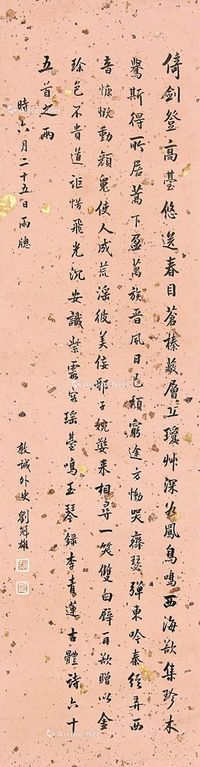 倚劍登高臺悠送春目蒼榛蔽層丘瓊艸深谷鳳鳥鳴西海欲集珍木
鸒斯得所居蒿下盈萬族晉風日已頹窮途方慟哭齊瑟彈東吟秦絃弄西
音慷慨動顏魄使人成荒淫彼美佞邪子婉孌來相尋一笑雙白璧百歌贈以金
珍色不貴道詎惜飛光沈安識紫霞客瑤臺鳴玉琴錄李青蓮古體詩六十
五首之兩
時六月二十五日雨牕
敦誠外史 劉冠雄